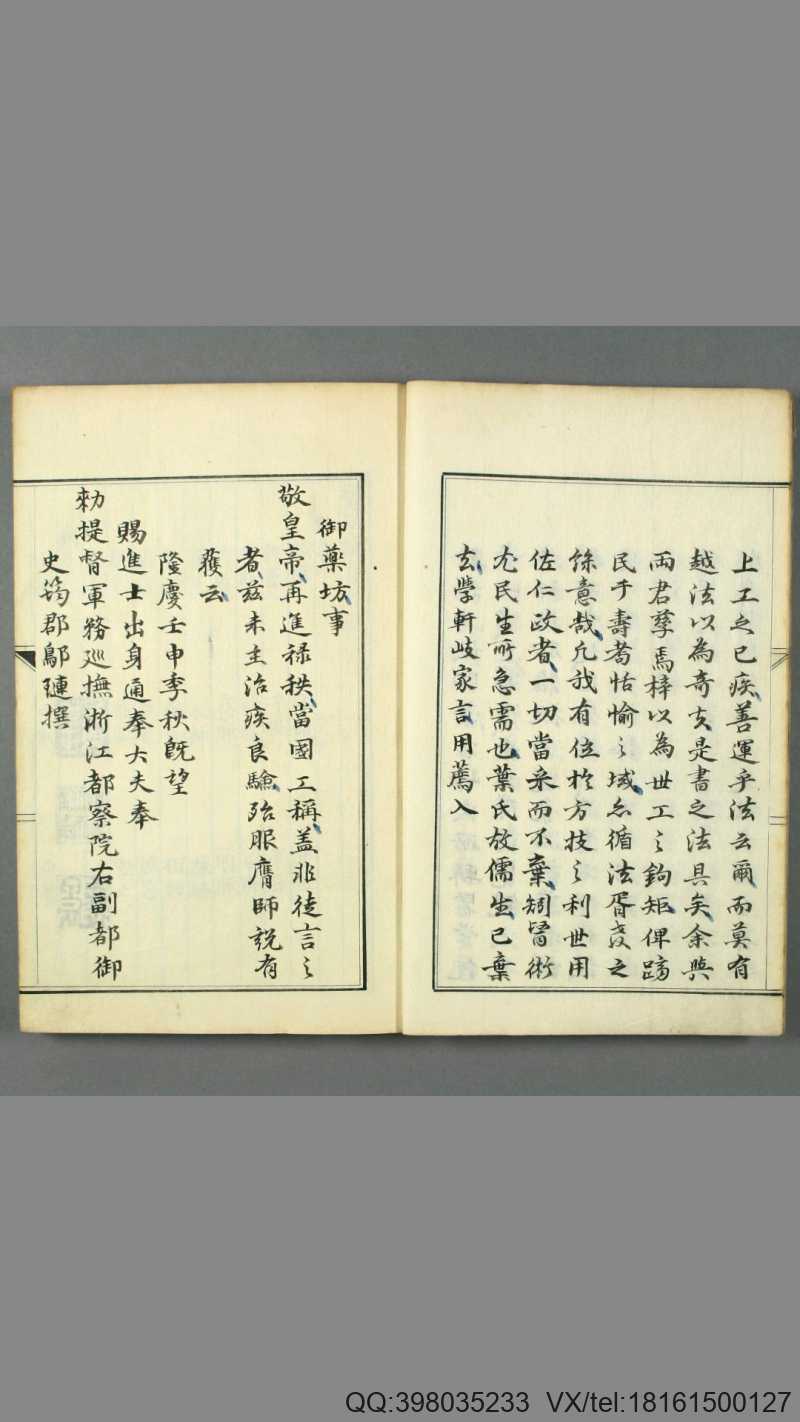 上工之已疾善運乎法云爾而莫有
越法以為奇者是書之法具矣余與
兩君孳焉梓以為世工之鉤矩俾躋
民于壽耇恬愉之域亦循法胥爻之
餘意哉凢我有位於方技之利世用
佐仁政者一切當采而不棄矧醫術
尤民生所急需也葉氏故儒生已棄
去學軒岐家言用薦入
御藥坊事
敬皇帝再進禄秩當國工稱盖非徒言之
者茲未主治疾良驗殆服膺師説有
獲云
隆慶壬申季秋既望
賜進士出身通奉大夫奉
勑提督軍務巡撫浙江都察院右副都御
史筠郡鄔璉撰
QQ:398035233 VX/tel:18161500127